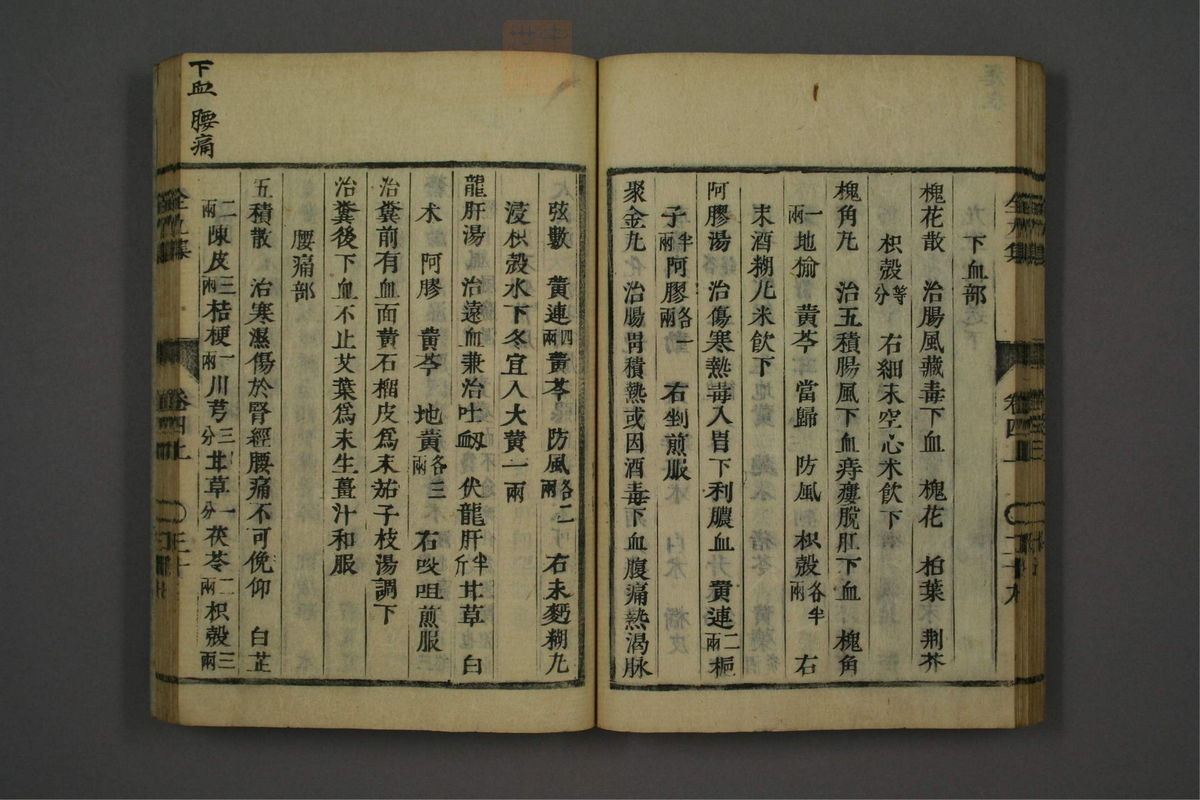 下血部
槐花散 治腸風藏毒下血 槐花 柏葉 荆芥
枳殼等分 右細末空心米飲下
槐角丸 治五積腸風下血痔瘻脫肛下血 槐角
一兩地榆 黃芩 當歸 防風 枳殼各半兩 右
末酒糊丸米飲下
阿膠湯 治傷寒熱毒入胃下利膿血 黃連二兩梔
子半兩阿膠各一兩 右剉煎服
聚金丸 治腸胃積熱或因酒毒下血腹痛熱渴脉
弦數 黃連四兩黃芩 防風各二兩 右末麪糊丸
浸枳殼水下冬宜入大黃一兩
龍肝湯 治遠血兼治吐衂 伏龍肝半斤甘草 白
术 阿膠 黃芩 地黃各三兩 右㕮咀煎服
治糞前有血面黃石榴皮爲末茄子枝湯調下
治糞後下血不止艾葉爲末生薑汁和服
腰痛部
五積散 治寒濕傷於腎經腰痛不可俛仰 白芷
二兩陳皮三兩桔梗一兩川芎三分甘草一分茯苓二兩枳殼三兩
下血 腰痛
卷四上